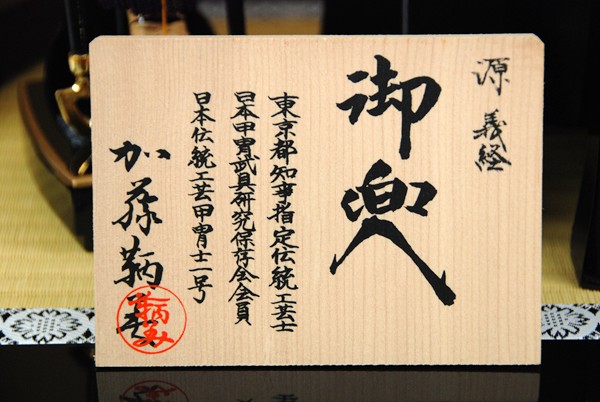 源 義経
御兜
東京都知事指定伝統工芸士
日本甲冑武具研究保存会会員
日本伝統工芸甲冑士一号
加藤鞆美
鞆美